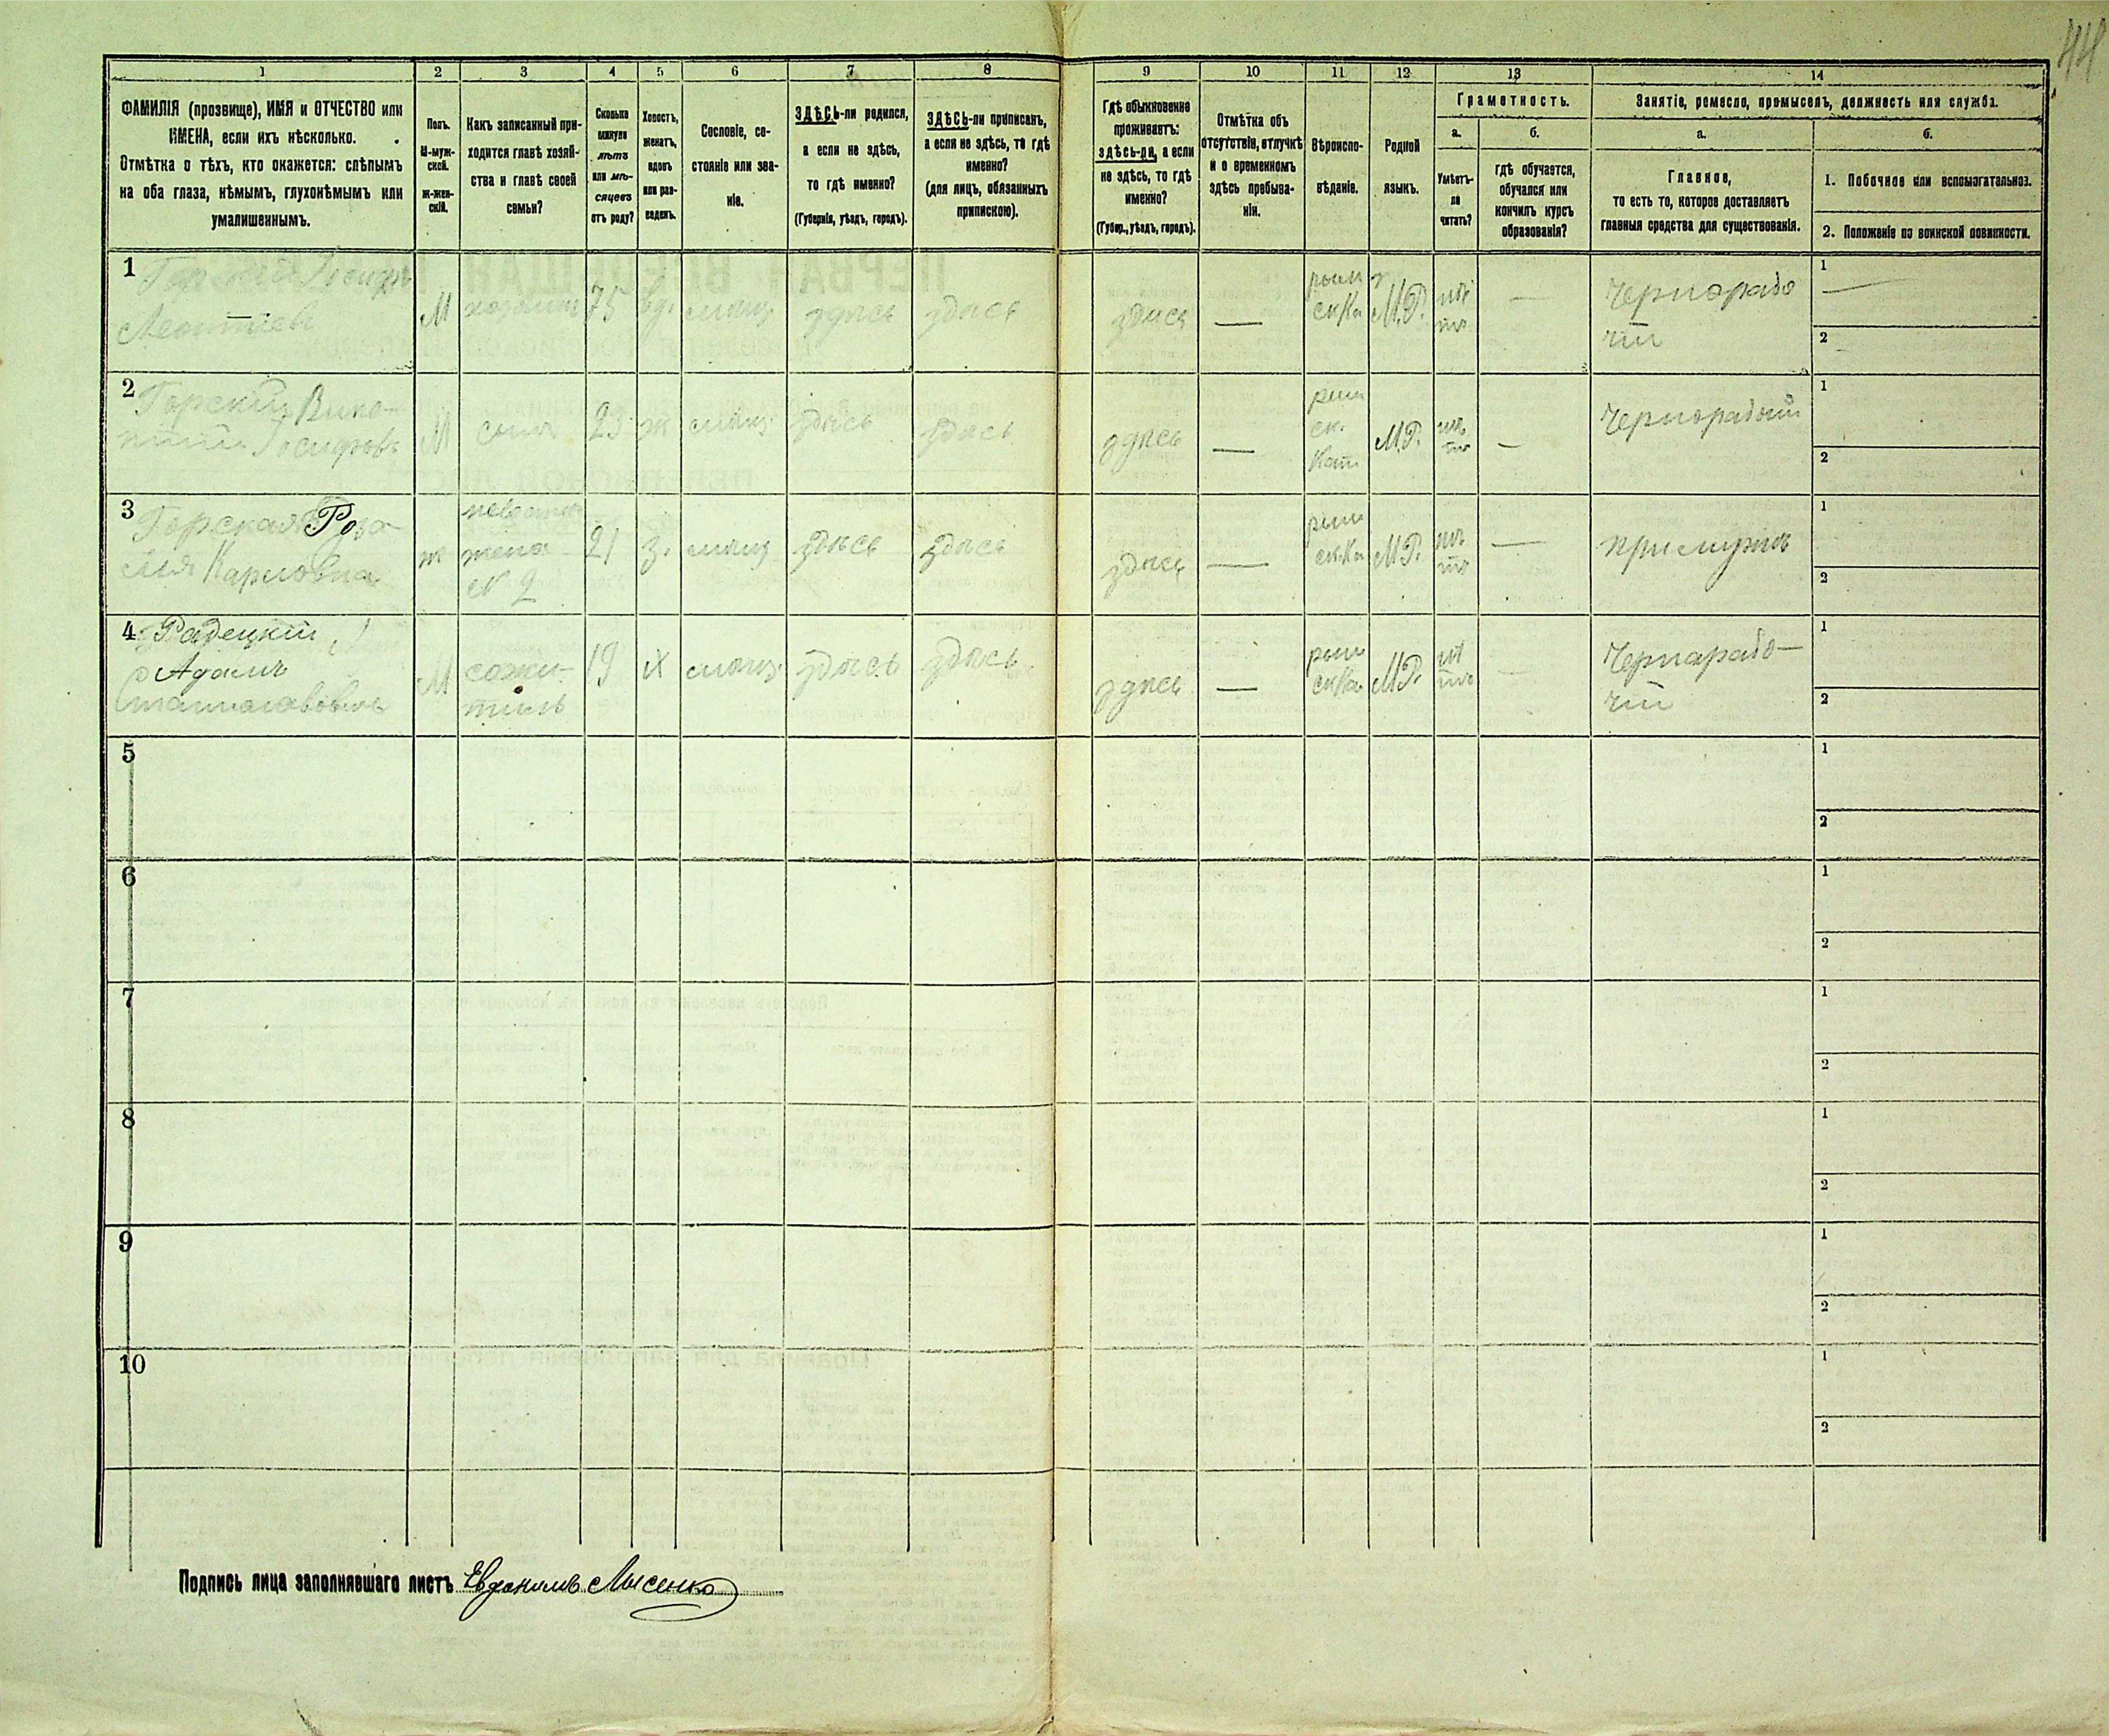 44
1 2 3 4 5 6 7 8 9 10 11 12 13 14
ФАМИЛІЯ (прозвище), ИМЯ и ОТЧЕСТВО или
ИМЕНА, если ихъ нѣсколько.
Отмѣтка о тѣхъ, кто окажется: слѣпымъ
на оба глаза, нѣмымъ, глухонѣмымъ или
умалишеннымъ.
Полъ.
М-муж-
ской.
Ж-жен-
скій.
Какъ записанный при-
ходится главѣ хозяй-
ства и главѣ своей
семьи?
Сколько
минуло
лѣтъ
или мѣ-
сяцевъ
отъ роду?
Холостъ,
женатъ,
вдовъ
или раз-
веденъ.
Сословіе, со-
стояніе или зва-
ніе.
ЗДѢСЬ-ли родился,
а если не здѣсь,
то гдѣ именно?
(Губернія, уѣздъ, городъ).
ЗДѢСЬ-ли приписанъ,
а если не здѣсь, то гдѣ
именно?
(для лицъ, обязанныхъ
припискою).
Гдѣ обыкновенно
проживаетъ:
здѣсь-ли, а если
не здѣсь, то гдѣ
именно?
(Губер., уѣздъ, городъ).
Отмѣтка объ
отсутствіи, отлучкѣ
и о временномъ
здѣсь пребыва-
ніи.
Вѣроиспо-
вѣданіе.
Родной
языкъ.
Грамотность.
а.
Умѣетъ-
ли
читать?
б.
гдѣ обучается,
обучался или
кончилъ курсъ
образованія?
Занятіе, ремесло, промыселъ, должность или служба.
а.
Главное,
то есть то, которое доставляетъ
главныя средства для существованія.
б.
1. Побочное или вспомогательное.
2. Положеніе по воинской повинности.
1
Леонтіевъ
М
75
вд.
здѣсь
здѣсь
здѣсь
—
М.Р.
нѣтъ
—
Чернорабо
чій
1 —
2
2 Горскій Вике-
Іосифовъ
М
сынъ
ж
здѣсь
здѣсь
здѣсь
—
М.Р.
нѣтъ
—
Чернорабочій
1
2
3 Горская Роза-
лія Карловна
ж
жена
№ 2
21
з.
здѣсь
здѣсь
здѣсь
—
М.Р.
нѣтъ
—
при мужѣ
1
2
4 Радецкій
Адамъ
М
сожи-
тель
19
х
здѣсь
здѣсь
здѣсь
—
М.Р.
нѣтъ
Чернарабо-
чій
1
2
5
1
2
6
1
2
7
1
2
8
1
2
9
1
2
10
1
2
Подпись лица заполнявшаго листъ Евдокимъ Лысенко